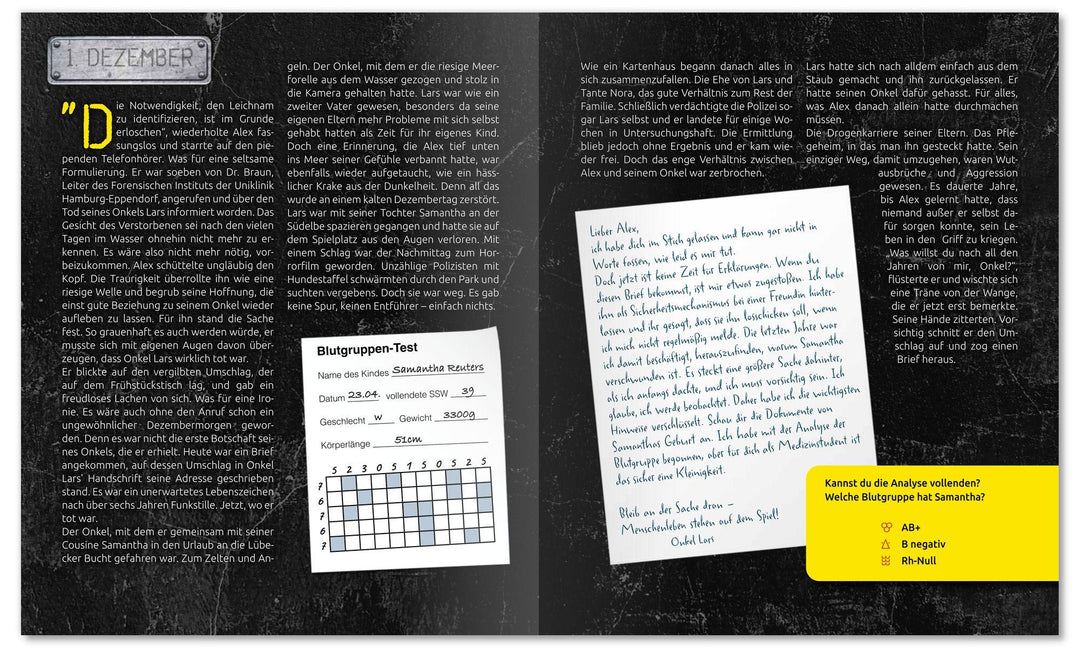 1. DEZEMBER
"Die Notwendigkeit, den Leichnam
zu identifizieren, ist im Grunde
erloschen", wiederholte Alex fas-
sungslos und starrte auf den pie-
penden Telefonhörer. Was für eine seltsame
Formulierung. Er war soeben von Dr. Braun,
Leiter des Forensischen Instituts der Uniklinik
Hamburg-Eppendorf, angerufen und über den
Tod seines Onkels Lars informiert worden. Das
Gesicht des Verstorbenen sei nach den vielen
Tagen im Wasser ohnehin nicht mehr zu er-
kennen. Es wäre also nicht mehr nötig, vor-
beizukommen. Alex schüttelte ungläubig den
Kopf. Die Traurigkeit überrollte ihn wie eine
riesige Welle und begrub seine Hoffnung, die
einst gute Beziehung zu seinem Onkel wieder
aufleben zu lassen. Für ihn stand die Sache
fest. So grauenhaft es auch werden würde, er
musste sich mit eigenen Augen davon über-
zeugen, dass Onkel Lars wirklich tot war.
Er blickte auf den vergilbten Umschlag, der
auf dem Frühstückstisch lag, und gab ein
freudloses Lachen von sich. Was für eine Iro-
nie. Es wäre auch ohne den Anruf schon ein
ungewöhnlicher Dezembermorgen gewor-
den. Denn es war nicht die erste Botschaft sei-
nes Onkels, die er erhielt. Heute war ein Brief
angekommen, auf dessen Umschlag in Onkel
Lars' Handschrift seine Adresse geschrieben
stand. Es war ein unerwartetes Lebenszeichen
nach über sechs Jahren Funkstille. Jetzt, wo er
tot war.
Der Onkel, mit dem er gemeinsam mit seiner
Cousine Samantha in den Urlaub an die Lübe-
cker Bucht gefahren war. Zum Zelten und An-
geln. Der Onkel, mit dem er die riesige Meer-
forelle aus dem Wasser gezogen und stolz in
die Kamera gehalten hatte. Lars war wie ein
zweiter Vater gewesen, besonders da seine
eigenen Eltern mehr Probleme mit sich selbst
gehabt hatten als Zeit für ihr eigenes Kind.
Doch eine Erinnerung, die Alex tief unten
ins Meer seiner Gefühle verbannt hatte, war
ebenfalls wieder aufgetaucht, wie ein häss-
licher Krake aus der Dunkelheit. Denn all das
wurde an einem kalten Dezembertag zerstört.
Lars war mit seiner Tochter Samantha an der
Südelbe spazieren gegangen und hatte sie auf
dem Spielplatz aus den Augen verloren. Mit
einem Schlag war der Nachmittag zum Hor-
rorfilm geworden. Unzählige Polizisten mit
Hundestaffel schwärmten durch den Park und
suchten vergebens. Doch sie war weg. Es gab
keine Spur, keinen Entführer – einfach nichts.
Blutgruppen-Test
Name des Kindes Samantha Reuters
Datum 23.04. vollendete SSW 39
Geschlecht w Gewicht 3300g
Körperlänge 51cm
5 2 3 0 5 1 5 0 5 2 5
7
6
7
6
7
Wie ein Kartenhaus begann danach alles in
sich zusammenzufallen. Die Ehe von Lars und
Tante Nora, das gute Verhältnis zum Rest der
Familie. Schließlich verdächtigte die Polizei so-
gar Lars selbst und er landete für einige Wo-
chen in Untersuchungshaft. Die Ermittlung
blieb jedoch ohne Ergebnis und er kam wie-
der frei. Doch das enge Verhältnis zwischen
Alex und seinem Onkel war zerbrochen.
Lars hatte sich nach alldem einfach aus dem
Staub gemacht und ihn zurückgelassen. Er
hatte seinen Onkel dafür gehasst. Für alles,
was Alex danach allein hatte durchmachen
müssen.
Die Drogenkarriere seiner Eltern. Das Pfle-
geheim, in das man ihn gesteckt hatte. Sein
einziger Weg, damit umzugehen, waren Wut-
ausbrüche und Aggression
gewesen. Es dauerte Jahre,
bis Alex gelernt hatte, dass
niemand außer er selbst da-
für sorgen konnte, sein Le-
ben in den Griff zu kriegen.
„Was willst du nach all den
Jahren von mir, Onkel?",
flüsterte er und wischte sich
eine Träne von der Wange,
die er jetzt erst bemerkte.
Seine Hände zitterten. Vor-
sichtig schnitt er den Um-
schlag auf und zog einen
Brief heraus.
Lieber Alex,
ich habe dich im Stich gelassen und kann gar nicht in
Worte fassen, wie leid es mir tut.
Doch jetzt ist keine Zeit für Erklärungen. Wenn du
diesen Brief bekommst, ist mir etwas zugestoßen. Ich habe
ihn als Sicherheitsmechanismus bei einer Freundin hinter-
lassen und ihr gesagt, dass sie ihn losschicken soll, wenn
ich mich nicht regelmäßig melde. Die letzten Jahre war
ich damit beschäftigt, herauszufinden, warum Samantha
verschwunden ist. Es steckt eine größere Sache dahinter,
als ich anfangs dachte, und ich muss vorsichtig sein. Ich
glaube, ich werde beobachtet. Daher habe ich die wichtigsten
Hinweise verschlüsselt. Schau dir die Dokumente von
Samanthas Geburt an. Ich habe mit der Analyse der
Blutgruppe begonnen, aber für dich als Medizinstudent ist
das sicher eine Kleinigkeit.
Bleib an der Sache dran –
Menschenleben stehen auf dem Spiel!
Onkel Lars
Kannst du die Analyse vollenden?
Welche Blutgruppe hat Samantha?
AB+
B negativ
Rh-Null